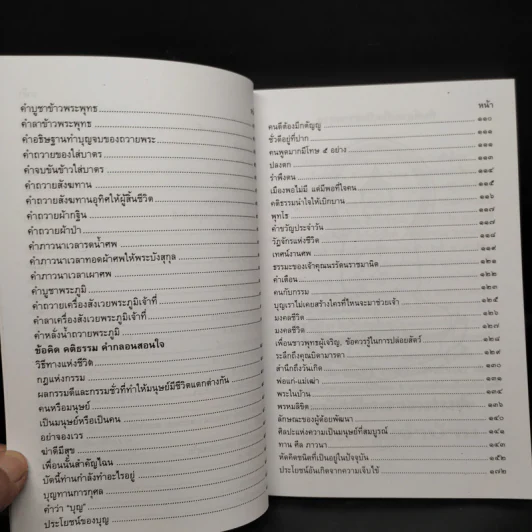 คำบูชาข้าวพระพุทธ
คำลาข้าวพระพุทธ
คำอธิษฐานทำบุญจบของถวายพระ
คำถวายของใส่บาตร
คำจบขันข้าวใส่บาตร
คำถวายสังฆทาน
คำถวายสังฆทานอุทิศให้ผู้สิ้นชีวิต
คำถวายผ้ากฐิน
คำถวายผ้าป่า
คำภาวนาเวลารดน้ำศพ
คำภาวนาเวลาทอดผ้าศพให้พระบังสุกุล
คำภาวนาเวลาเผาศพ
คำบูชาพระภูมิ
คำถวายเครื่องสังเวยพระภูมิเจ้าที่
คำลาเครื่องสังเวยพระภูมิเจ้าที่
คำหลั่งน้ำถวายพระภูมิ
ข้อคิด คติธรรม คำกลอนสอนใจ
วิธีทางแห่งชีวิต
กฎแห่งกรรม
ผลกรรมดีและกรรมชั่วที่ทำให้มนุษย์มีชีวิตแตกต่างกัน
คนหรือมนุษย์
เป็นมนุษย์หรือเป็นคน
อย่าจองเวร
ฆ่าดีมีสุข
เพื่อนนั้นสำคัญไฉน
บัดนี้ท่านกำลังทำอะไรอยู่
บุญทานการกุศล
คำว่า "บุญ"
ประโยชน์ของบุญ
หน้า
คนดีต้องมีกตัญญู ๑๑๐
ชั่วดีอยู่ที่ปาก ๑๑๑
คนพูดมากมีโทษ ๕ อย่าง ๑๑๑
ปลงตก ๑๑๓
รำพึงตน ๑๑๔
เมืองพอไม่มี แต่มีพอที่ใจคน ๑๑๕
คติธรรมนำใจให้เบิกบาน ๑๑๖
พุทโธ ๑๑๗
คำขวัญประจำวัน ๑๑๗
วัฏจักรแห่งชีวิต ๑๑๘
เทศน์งานศพ ๑๑๙
ธรรมะของเจ้าคุณนรรัตนราชมานิต ๑๒๑
คำเตือน ๑๒๒
คนกับกรรม ๑๒๓
บุญเราไม่เคยสร้างใครที่ไหนจะมาช่วยเจ้า ๑๒๕
มงคลชีวิต
มงคลชีวิต ๑๒๗
เพื่อนชาวพุทธผู้เจริญ, ข้อควรรู้ในการปล่อยสัตว์ ๑๒๘
ระลึกถึงคุณบิดามารดา ๑๒๙
สำนึกถึงวันเกิด ๑๓๐
พ่อแก่-แม่เฒ่า ๑๓๓
พระในบ้าน ๑๓๔
พรหมลิขิต ๑๓๖
ลักษณะของผู้ด้อยพัฒนา ๑๔๐
ศิลปะแห่งความเป็นมนุษย์ที่สมบูรณ์ ๑๔๑
ทาน ศีล ภาวนา ๑๔๓
ทัศคิดชนิดที่เป็นอยู่ในปัจจุบัน ๑๕๒
ประโยชน์อันเกิดจากความเจ็บไข้ ๑๗๒